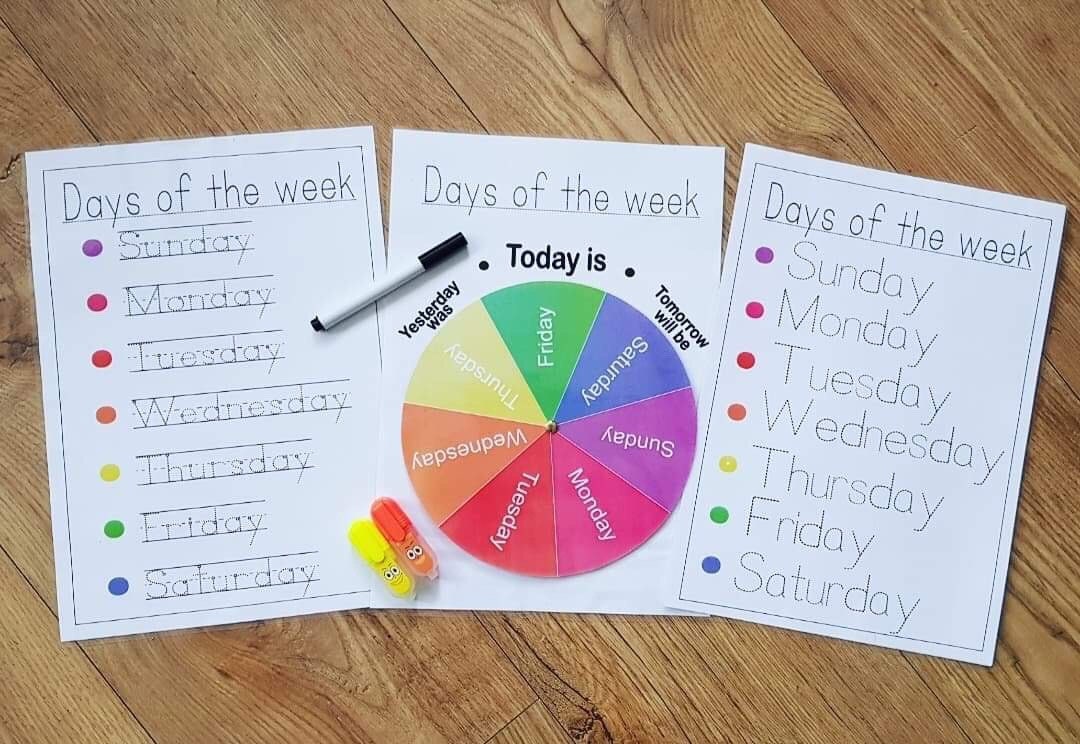 Days of the week
Sunday
Monday
Tuesday
Wednesday
Thursday
Friday
Saturday
Days of the week
• Today is •
Yesterday
was
Tomorrow
will be
Friday
Saturday
Sunday
Monday
Tuesday
Wednesday
Thursday
Days of the week
Sunday
Monday
Tuesday
Wednesday
Thursday
Friday
Saturday